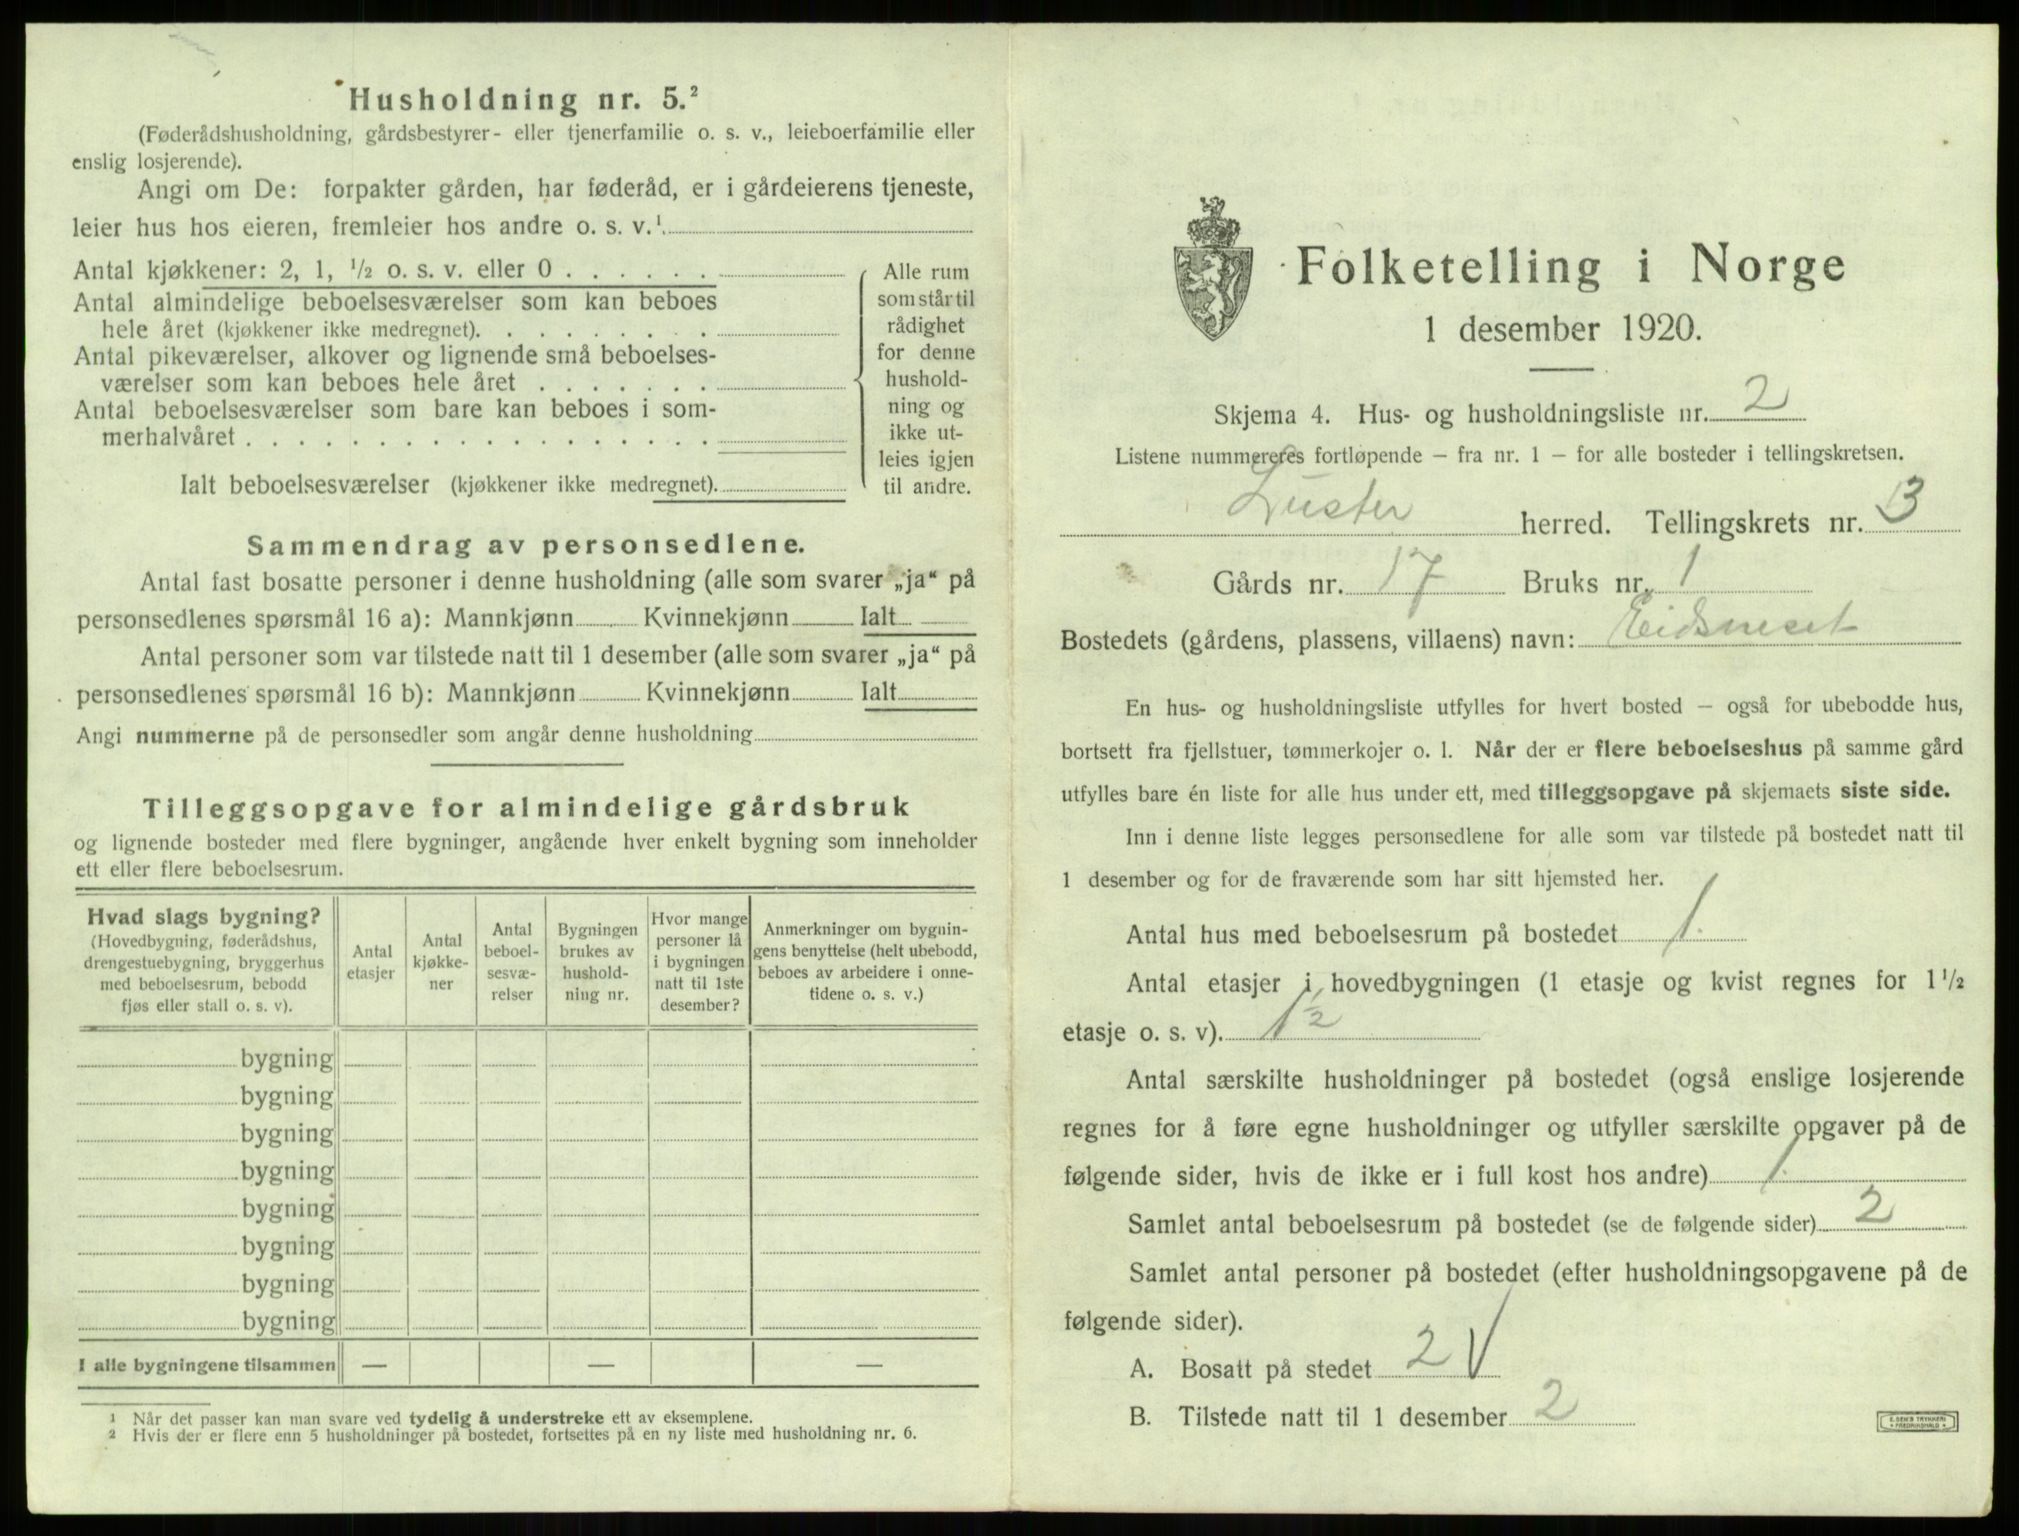 Husholdning nr. 5.²
(Føderådshusholdning, gårdsbestyrer- eller tjenerfamilie o. s. v., leieboerfamilie eller
enslig losjerende).
Angi om De: forpakter gården, har føderåd, er i gårdeierens tjeneste,
leier hus hos eieren, fremleier hos andre o. s. v.¹
Antal kjøkkener: 2, 1, ½ o. s. v. eller 0 . . . . . .
Antal almindelige beboelsesværelser som kan beboes
hele året (kjøkkener ikke medregnet). . . . . . . .
Antal pikeværelser, alkover og lignende små beboelses-
værelser som kan beboes hele året . . . . . . .
Antal beboelsesværelser som bare kan beboes i som-
merhalvåret . . . . . . . . . . . . . . . . . .
Ialt beboelsesværelser (kjøkkener ikke medregnet).
Alle rum
som står til
rådighet
for denne
hushold-
ning og
ikke ut-
leies igjen
til andre.
Sammendrag av personsedlene.
Antal fast bosatte personer i denne husholdning (alle som svarer „ja“ på
personsedlenes spørsmål 16 a): Mannkjønn Kvinnekjønn Ialt
Antal personer som var tilstede natt til 1 desember (alle som svarer „ja“ på
personsedlenes spørsmål 16 b): Mannkjønn Kvinnekjønn Ialt
Angi nummerne på de personsedler som angår denne husholdning
Tilleggsopgave for almindelige gårdsbruk
og lignende bosteder med flere bygninger, angående hver enkelt bygning som inneholder
ett eller flere beboelsesrum.
Hvad slags bygning?
(Hovedbygning, føderådshus,
drengestuebygning, bryggerhus
med beboelsesrum, bebodd
fjøs eller stall o. s. v).
Antal
etasjer
Antal
kjøkke-
ner
Antal
beboel-
sesvæ-
relser
Bygningen
brukes av
hushold-
ning nr.
Hvor mange
personer lå
i bygningen
natt til 1ste
desember?
Anmerkninger om bygnin-
gens benyttelse (helt ubebodd,
beboes av arbeidere i onne-
tidene o. s. v.)
bygning
bygning
bygning
bygning
bygning
bygning
bygning
bygning
I alle bygningene tilsammen — — —
¹ Når det passer kan man svare ved tydelig å understreke ett av eksemplene.
² Hvis der er flere enn 5 husholdninger på bostedet, fortsettes på en ny liste med husholdning nr. 6.
Folketelling i Norge
1 desember 1920.
Skjema 4. Hus- og husholdningsliste nr. 2
Listene nummereres fortløpende – fra nr. 1 – for alle bosteder i tellingskretsen.
Luster herred. Tellingskrets nr. 3
Gårds nr. 17 Bruks nr. 1
Bostedets (gårdens, plassens, villaens) navn: Eidsneset
En hus- og husholdningsliste utfylles for hvert bosted – også for ubebodde hus,
bortsett fra fjellstuer, tømmerkojer o. l. Når der er flere beboelseshus på samme gård
utfylles bare én liste for alle hus under ett, med tilleggsopgave på skjemaets siste side.
Inn i denne liste legges personsedlene for alle som var tilstede på bostedet natt til
1 desember og for de fraværende som har sitt hjemsted her.
Antal hus med beboelsesrum på bostedet 1.
Antal etasjer i hovedbygningen (1 etasje og kvist regnes for 1 ½
etasje o. s. v). 1½
Antal særskilte husholdninger på bostedet (også enslige losjerende
regnes for å føre egne husholdninger og utfyller særskilte opgaver på de
følgende sider, hvis de ikke er i full kost hos andre) 1.
Samlet antal beboelsesrum på bostedet (se de følgende sider) 2
Samlet antal personer på bostedet (efter husholdningsopgavene på de
følgende sider).
A. Bosatt på stedet 2 V
B. Tilstede natt til 1 desember 2
E. SEM'S TRYKKERI
FREDRIKSHALD